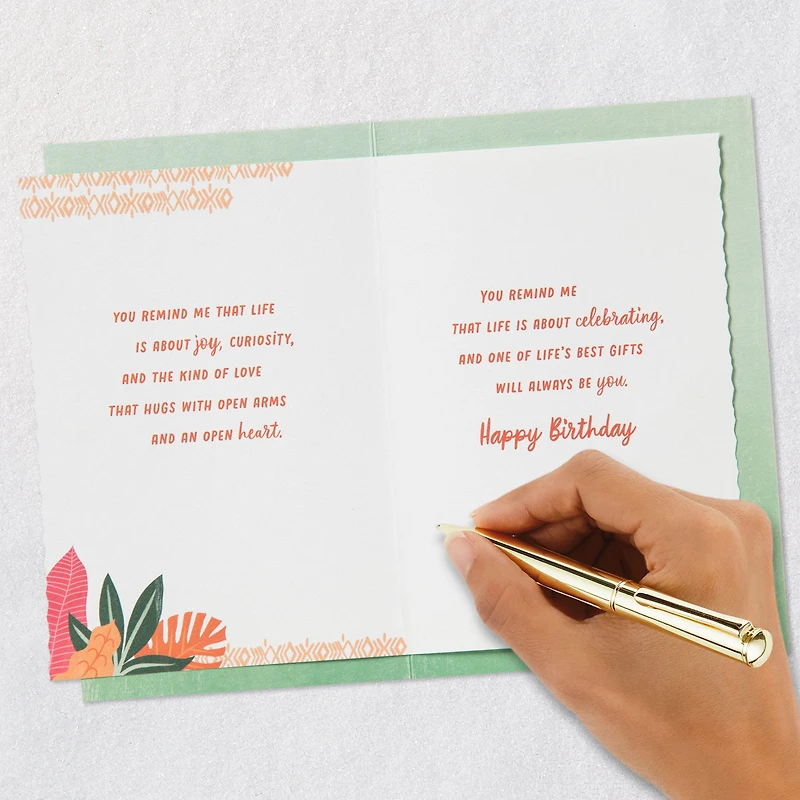 YOU REMIND ME THAT LIFE
IS ABOUT joy, CURIOSITY,
AND THE KIND OF LOVE
THAT HUGS WITH OPEN ARMS
AND AN OPEN heart.
YOU REMIND ME
THAT LIFE IS ABOUT celebrating,
AND ONE OF LIFE'S BEST GIFTS
WILL ALWAYS BE you.
Happy Birthday